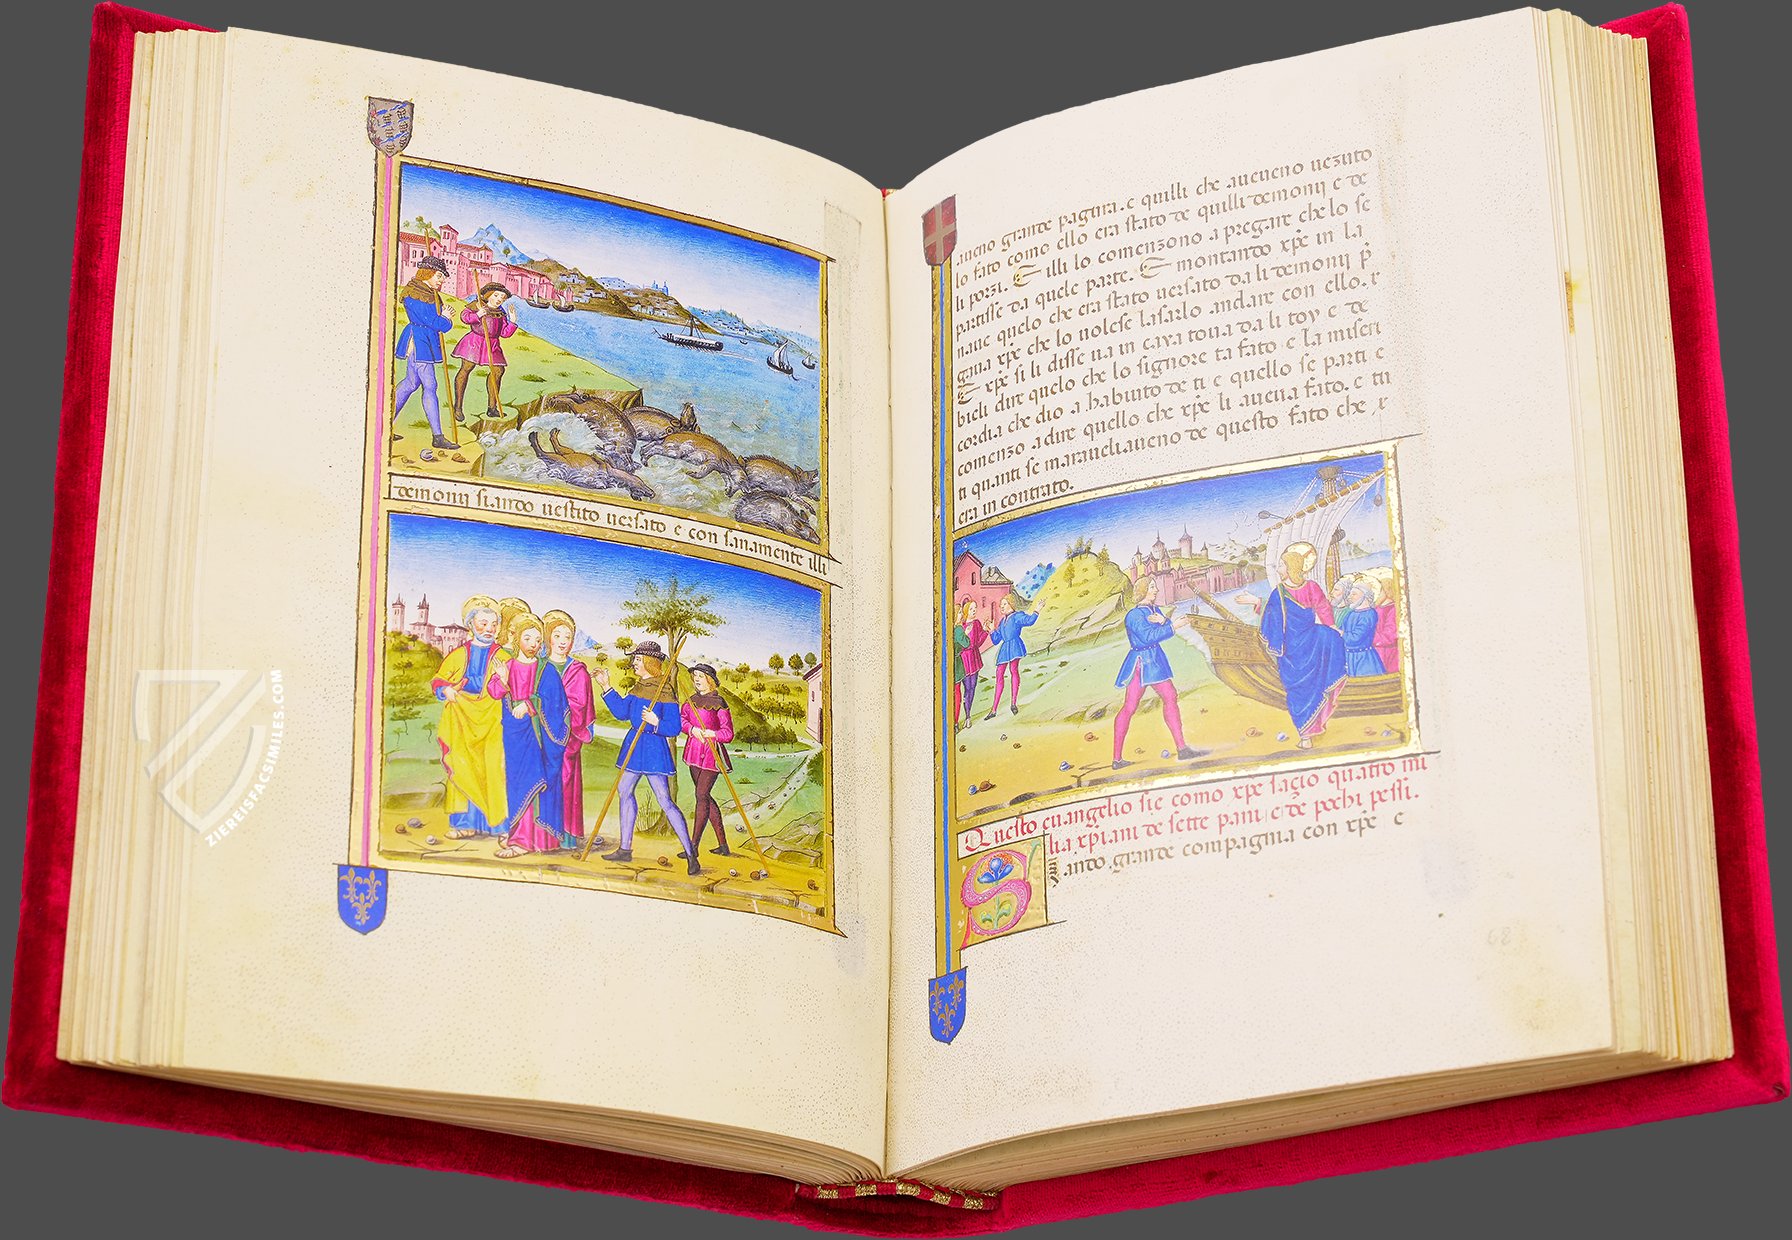 demonij stando vestito versato e con sanamente illi
aueno grande pagura. e quilli che aueueno uezuto
lo fato como ello era stato de quilli demonij e de
li porzi. E illi lo comenzono a pregare che lo se
partisse da quele parte. E montando xpe in la
naue quelo che era stato uersato da li demonij p
gaua xpe che lo uolese lasarlo andare con ello. E
E xpe si li disse ua in caxa toua da li toy e de
bieli dire quelo che lo signore ta fato e la miseri
cordia che dio a habiuto de ti e quello se parti e
comenzo a dire quello che xpe li aueua fato. e tu
ti quanti se maraueliaueno de questo fato che
era in contrato.
Questo euangelio sie como xpe sacio quatro mi
lia xpiani de sette pani e de pochi pessi.
Siando grande compagnia con xpe e
68
ZIEREISFACSIMILES.COM